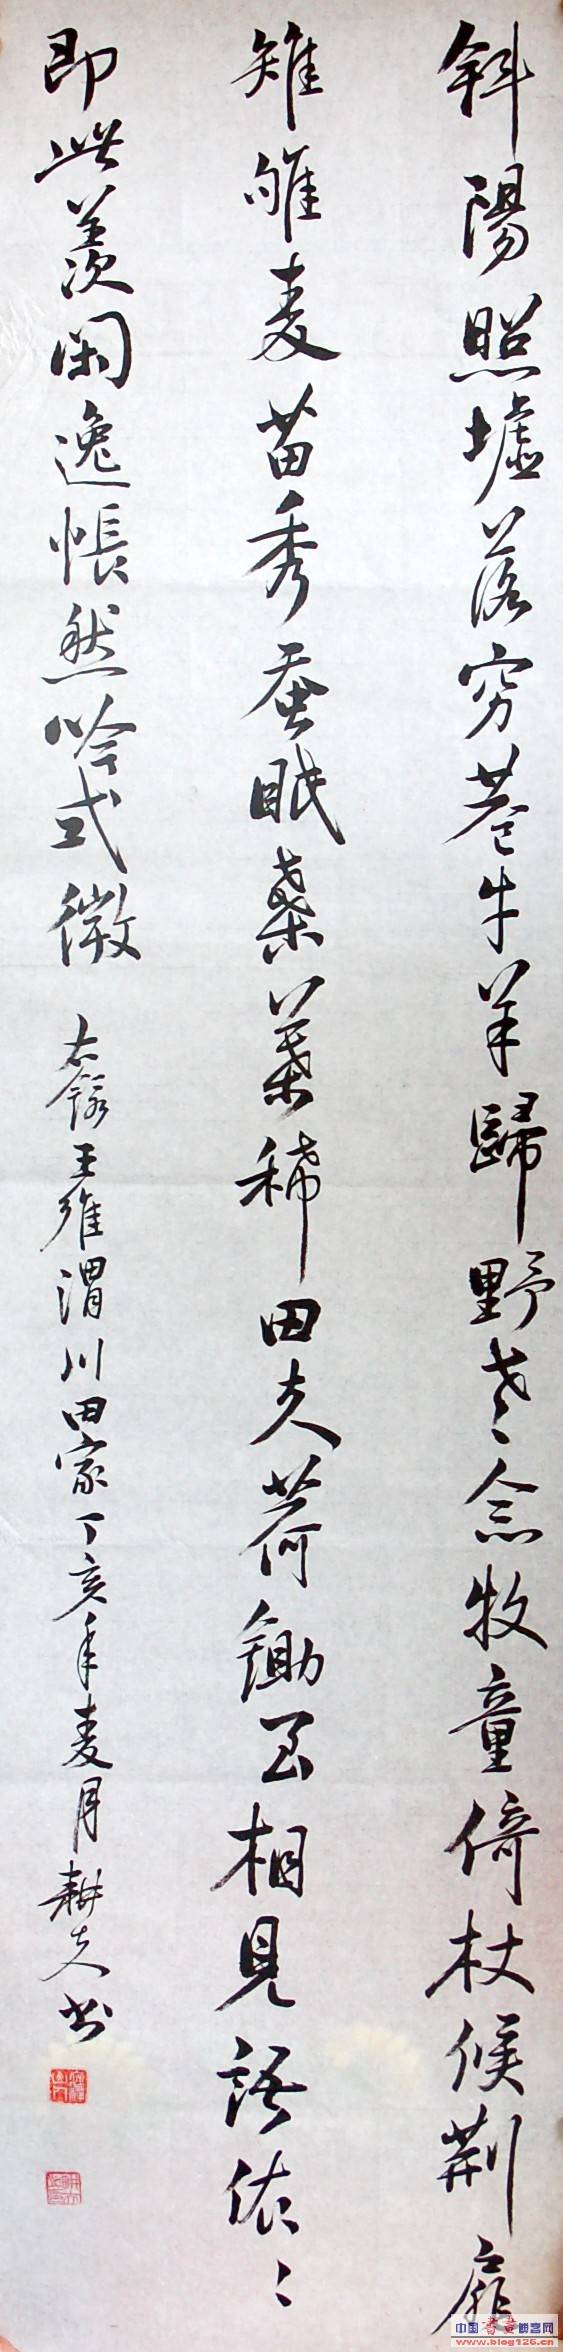 斜陽照墟落穷巷牛羊歸野老念牧童倚杖候荆扉
雉雊麦苗秀蚕眠桑葉稀田夫荷鋤至相見語依〻
即此羡闲逸悵然吟式微
右録王維渭川田家丁亥年麦月耕夫书
中国書畫博客网
www.blog126.cn